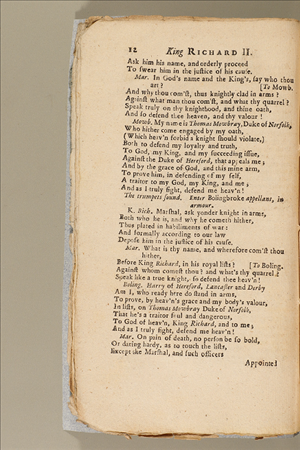 12 King RICHARD II.
Ask him his name, and orderly proceed
To swear him in the justice of his cause.
Mar. In God's name and the King's, say who thou
art? [To Mowb.
And why thou com'st, thus knightly clad in arms?
Against what man thou com'st, and what thy quarrel?
Speak truly on thy knighthood, and thine oath,
And so defend thee heaven, and thy valour!
Mowb. My name is Thomas Mowbray, Duke of Norfolk,
Who hither come engaged by my oath,
(Which heav'n forbid a knight should violate,)
Both to defend my loyalty and truth,
To God, my King, and my succeeding issue,
Against the Duke of Hereford, that appeals me;
And by the grace of God, and this mine arm,
To prove him, in defending of my self,
A traitor to my God, my King, and me;
And as I truly fight, defend me heav'n!
The trumpets sound. Enter Bolingbroke appellant, in
armour.
K. Rich. Marshal, ask yonder knight in arms,
Both who he is, and why he cometh hither,
Thus plated in habiliments of war:
And formally according to our law
Depose him in the justice of his cause.
Mar. What is thy name, and wherefore com'st thou
hither,
Before King Richard, in his royal lists? [To Boling.
Against whom comest thou? and what's thy quarrel?
Speak like a true knight, so defend thee heav'n!
Boling. Harry of Hereford, Lancaster and Derby
Am I, who ready here do stand in arms,
To prove, by heav'n's grace and my body's valour,
In lists, on Thomas Mowbray Duke of Norfolk,
That he's a traitor foul and dangerous,
To God of heav'n, King Richard, and to me;
And as I truly fight, defend me heav'n!
Mar. On pain of death, no person be so bold,
Or daring hardy, as to touch the lists,
Except the Marshal, and such officers
Appointed